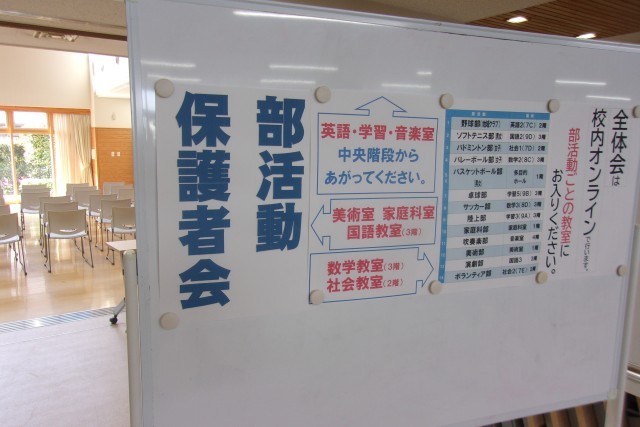 部活動
保護者会
英語・学習・音楽室
中央階段から
あがってください。
美術室 家庭科室
国語教室(3階)
数学教室(3階)
社会教室(2階)
野球部(地域クラブ) 英語2(7C) 2階
ソフトテニス部 国語2(9D) 3階
バドミントン部 社会1(7D) 2階
バレーボール部 数学2(8C) 3階
バスケットボール部 多目的ホール 1階
卓球部 学習5(9B) 3階
サッカー部 数学3(8D) 3階
陸上部 学習3(9A) 3階
家庭科部 家庭科室
吹奏楽部 音楽室
美術部 美術室
演劇部 国語3
ボランティア部 社会2(7E)
全体会は
校内オンラインで行います。
部活動ごとの教室に
お入りください。